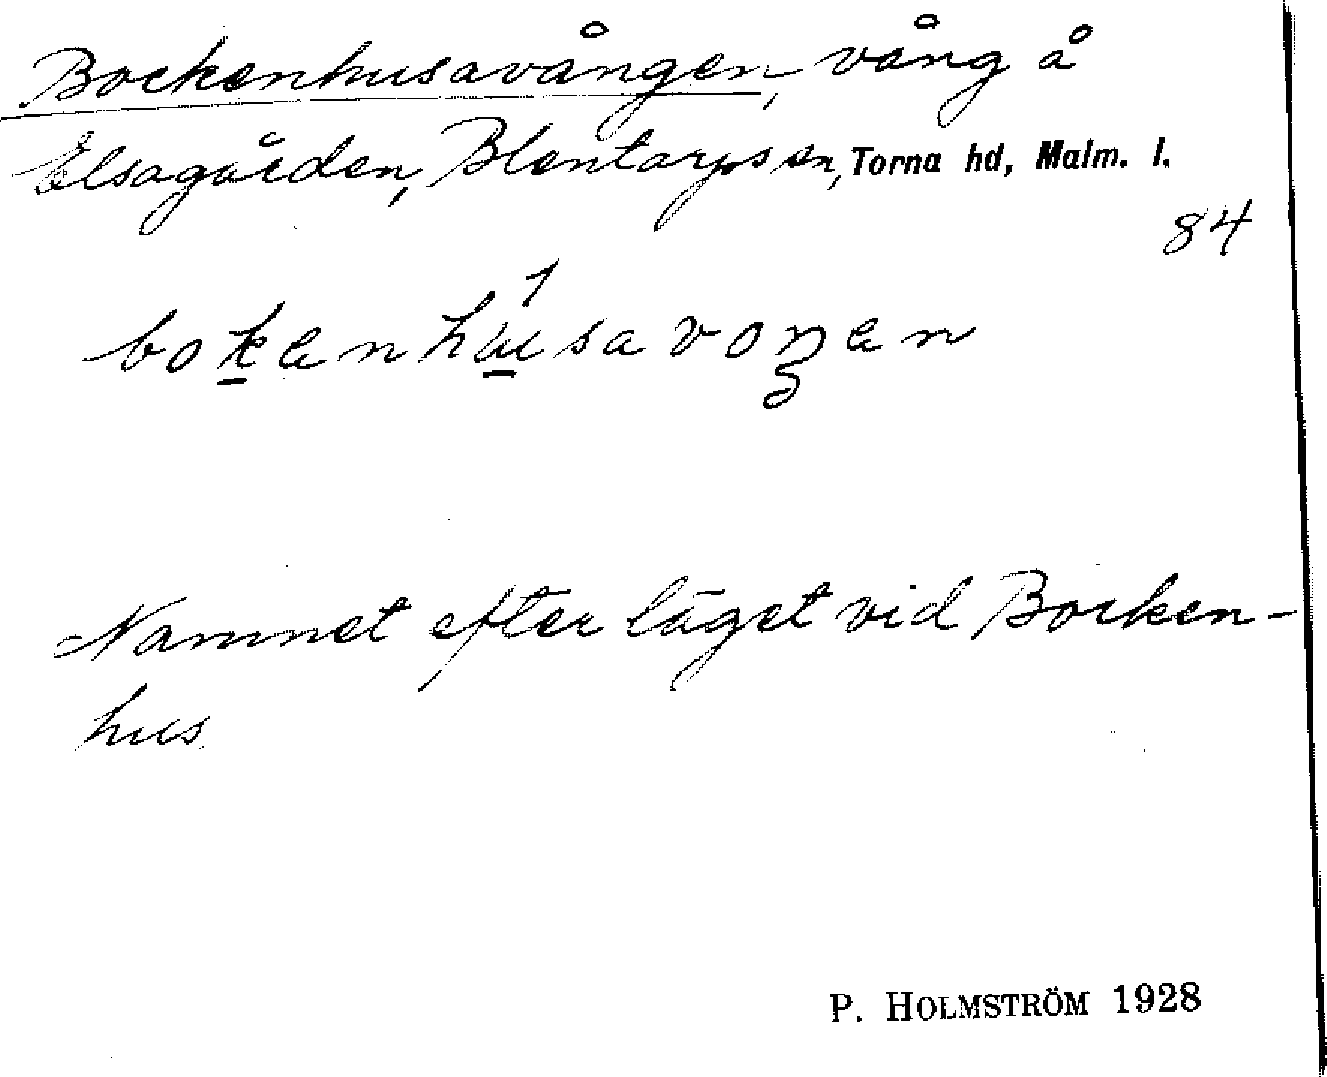 Bockenhusavången, vång å
Elsagården, Blentarps sn, Torna hd, Malm. l.
84
bokenhusavoŋen
Namnet efter läget vid Bocken-
hus.
P. HOLMSTRÖM 1928